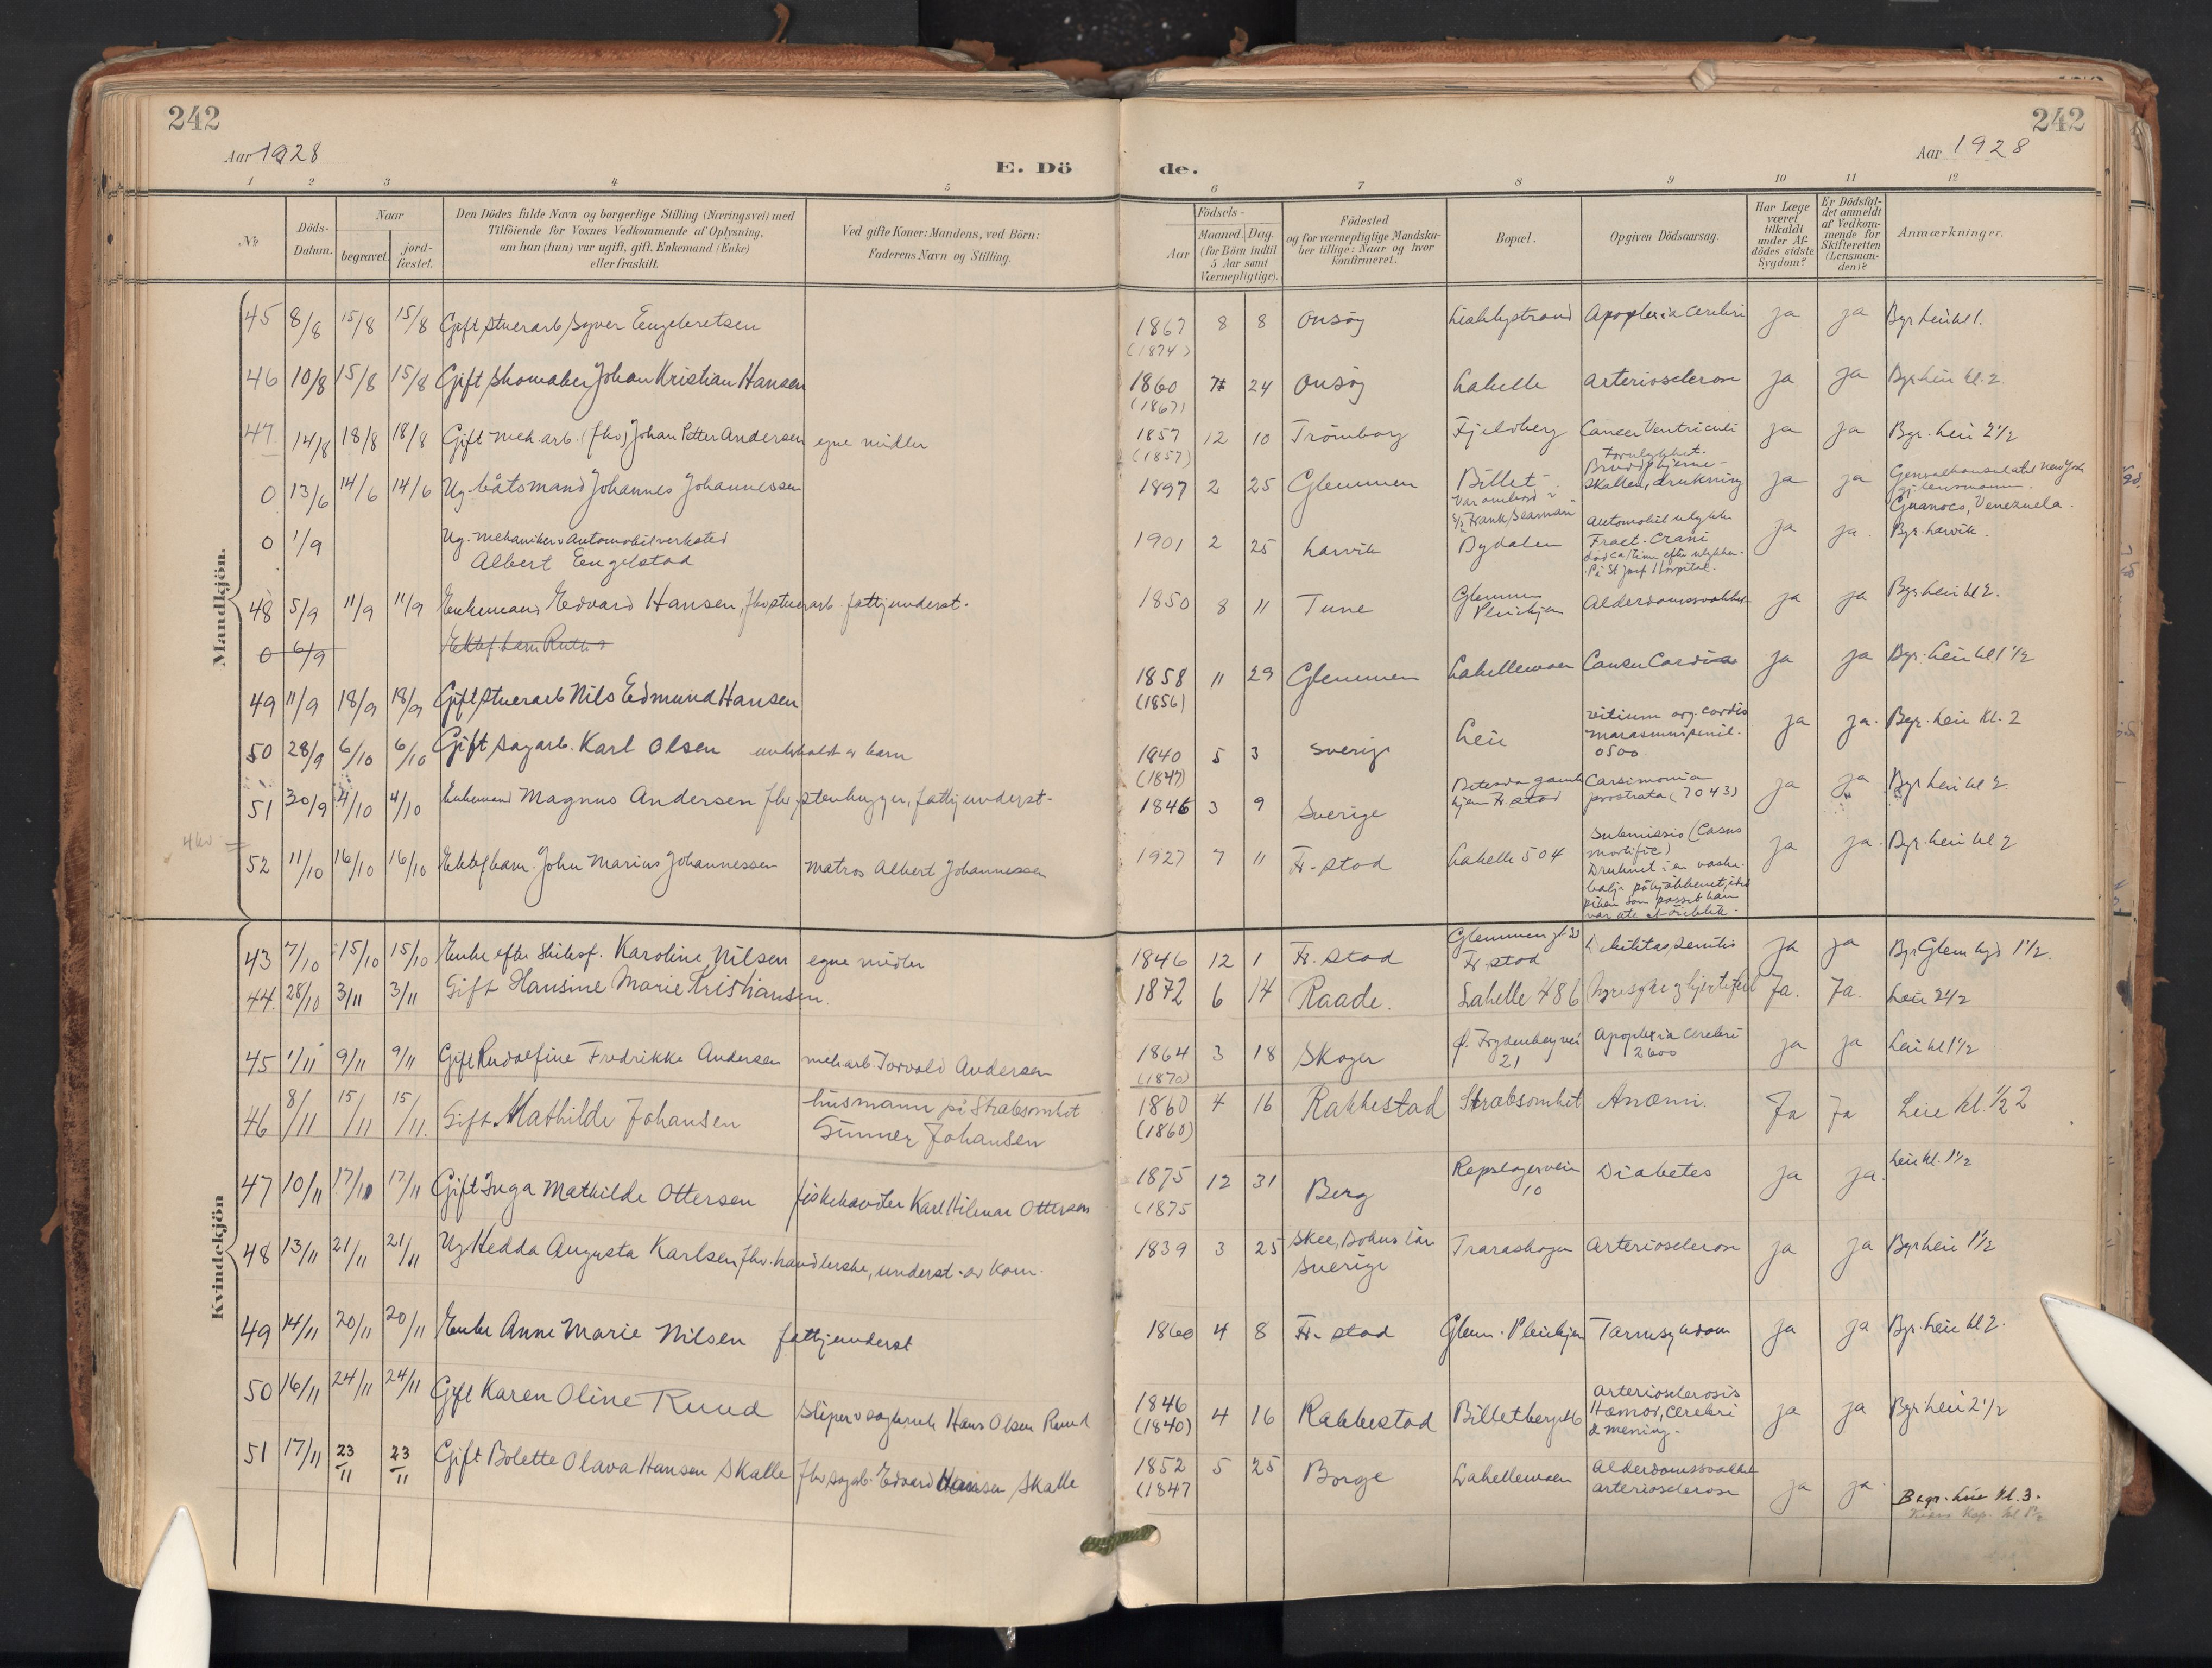 242
Aar 1928
E. Dö
1 2 3 4 5
No
Döds-Datum.
Naar
begravet.
jord-fæstet.
Den Dödes fulde Navn og borgerlige Stilling (Næringsvei) med
Tilföiende for Voxnes Vedkommende af Oplysning,
om han (hun) var ugift, gift, Enkemand (Enke)
eller fraskilt.
Ved gifte Koner: Mandens, ved Börn:
Faderens Navn og Stilling.
Mandkjön.
45 8/8 15/8 15/8 Gift stuerarb Syver Engebretsen
46 10/8 15/8 15/8 Gift skomaker Johan Kristian Hansen
47 14/8 18/8 18/8 Gift mek. arb. (fhv) Johan Petter Andersen egne midler
0 13/6 14/6 14/6 Ug. båtsmand Johannes Johannessen
0 1/9 Ug. mekaniker v Automobilverksted
Albert Engelstad
48 5/9 11/9 11/9 Enkemand Edvard Hansen, fhv stuerarb. fattigunderst.
0 6/9 Ektef barn Ruth
49 11/9 18/9 18/9 Gift stuerarb Nils Edmund Hansen
50 28/9 6/10 6/10 Gift sagarb. Karl Olsen underholdt av barn
51 30/9 4/10 4/10 Enkemand Magnus Andersen fhv. stenhugger, fattigunderst.
52 11/10 16/10 16/10 Ektef barn. John Marius Johannessen Matros Albert Johannessen
Kvindekjön
43 7/10 15/10 15/10 Enke efter skibsf. Karoline Nilsen egne midler
44. 28/10 3/11 3/11 Gift Hansine Marie Kristiansen.
45 1/11 9/11 9/11 Gift Rudolfine Fredrikke Andersen mek arb. Torvald Andersen
46 8/11 15/11 15/11. Gift. Mathilde Johansen husmann på Stræbsomhet
Gunner Johansen
47 10/11 17/11 17/11 Gift Inga Mathilde Ottersen fiskehandler Karl Hilmar Ottersen
48 13/11 21/11 21/11 Ug Hedda Augusta Karlsen fhv. handlerske, underst. av kom.
49 14/11 20/11 20/11 Enke Anne Marie Nilsen fattigunderst
50 16/11 24/11 24/11 Gift Karen Oline Ruud sliper v sagbruk Hans Olsen Ruud
51 17/11 23/11 23/11 Gift Bolette Olava Hansen Skalle fhv sagarb. Edvard Hansen Skalle
242
Aar 1928
de.
6 7 8 9 10 11 12
Födsels-
Aar
Maaned. Dag.
(for Börn indtil
5 Aar samt
Værnepligtige).
Födested
og for værnepligtige Mandska-
ber tillige: Naar og hvor
Konfirmeret.
Bopæl.
Opgiven Dödsaarsag.
Har Læge
været
tilkaldt
under Af-
dödes sidste
Sygdom?
Er Dödsfal-
det anmeldt
af Vedkom-
mende for
Skifteretten
(Lensman-
den)?
Anmærkninger.
1867 8 8 Onsøy Apoplexia cerebri ja ja Bgr. Leie kl 1.
(1874)
1860 24 Onsøy Lahelle Arteriosclerose ja ja Bgr. Leie kl. 2.
(1867)
1857 12 10 Trømborg Fjeldberg Cancer Ventriculi ja ja Bgr. Leie 2 1/2
(1857)
1897 2 25 Glemmen Billet Forulykket.
Brudd hjerne-
skallen, drukning ja ja Generalkonsulatet New York
Var ombord
S/S Frank Seaman
Guanoco, Venezuela.
1901 2 25 Larvik Bydalen Automobilulykke
Fract. Crani
død ca 1 time efter ulykken.
På St Josef Hospital. ja ja. Bgr. Larvik.
1850 8 11 Tune Glemmen
Pleiehjem Alderdomssvakhet ja ja Bgr. Leie kl 2.
1858 11 29 Glemmen Lahellemoen Cancer Cardia ja ja Bgr. Leie kl 1 1/2
(1856)
1840 5 3 Sverige Leie Vitium org. cordis
Marasmus senil.
0500 ja ja. Bgr. Leie kl. 2
(1847)
1846 3 9 Sverige Betesda gamle
hjem Fr. stad Carsimonia
prostrata (7043) ja ja Bgr. Leie kl 2.
1927 7 11 Fr. stad Lahelle 504 Submissio (Casus
mortific)
Druknet i en vaske-
balje på kjøkkenet, idet
piken som passet ham
var ute et øieblik. ja ja. Bgr. Leie kl 2
1846 12 1 Fr. stad Fr. stad Debilitas senilis ja ja Bgr Glem 1 1/2.
1872 6 14 Raade. Lahelle 486 Nyresyke og hjertefeil Ja. Ja. Leie 2 1/2
1864 3 18 Skoger Ø. Frydenberg vei
21 Apoplexia cerebri
2600 ja ja Leie kl 1 1/2
(1870)
1860 4 16 Rakkestad Stræbsomhet Anæmi. Ja Ja Leie kl. 1/2 2
(1860)
1875 12 31 Berg Repslagerveien
10 Diabetes ja ja. Leie kl. 1 1/2
(1875
1839 3 25 Skee, Bohus län
Sverige Traraskogen Arteriosclerose ja ja Bgr Leie 1 1/2
1860 4 8 Fr. stad Glem. Pleiehjem Tarmsykdom ja ja Bgr. Leie kl 2.
1846 4 16 Rakkestad Billetberget Arteriosclerosis
Hæmor, cerebri
& mening. ja ja Bgr Leie 2 1/2
(1840)
1852 5 25 Borge Lahellemoen Alderdomssvakhet
Arteriosclerose ja ja. Begr. Leie kl. 3.
(1847